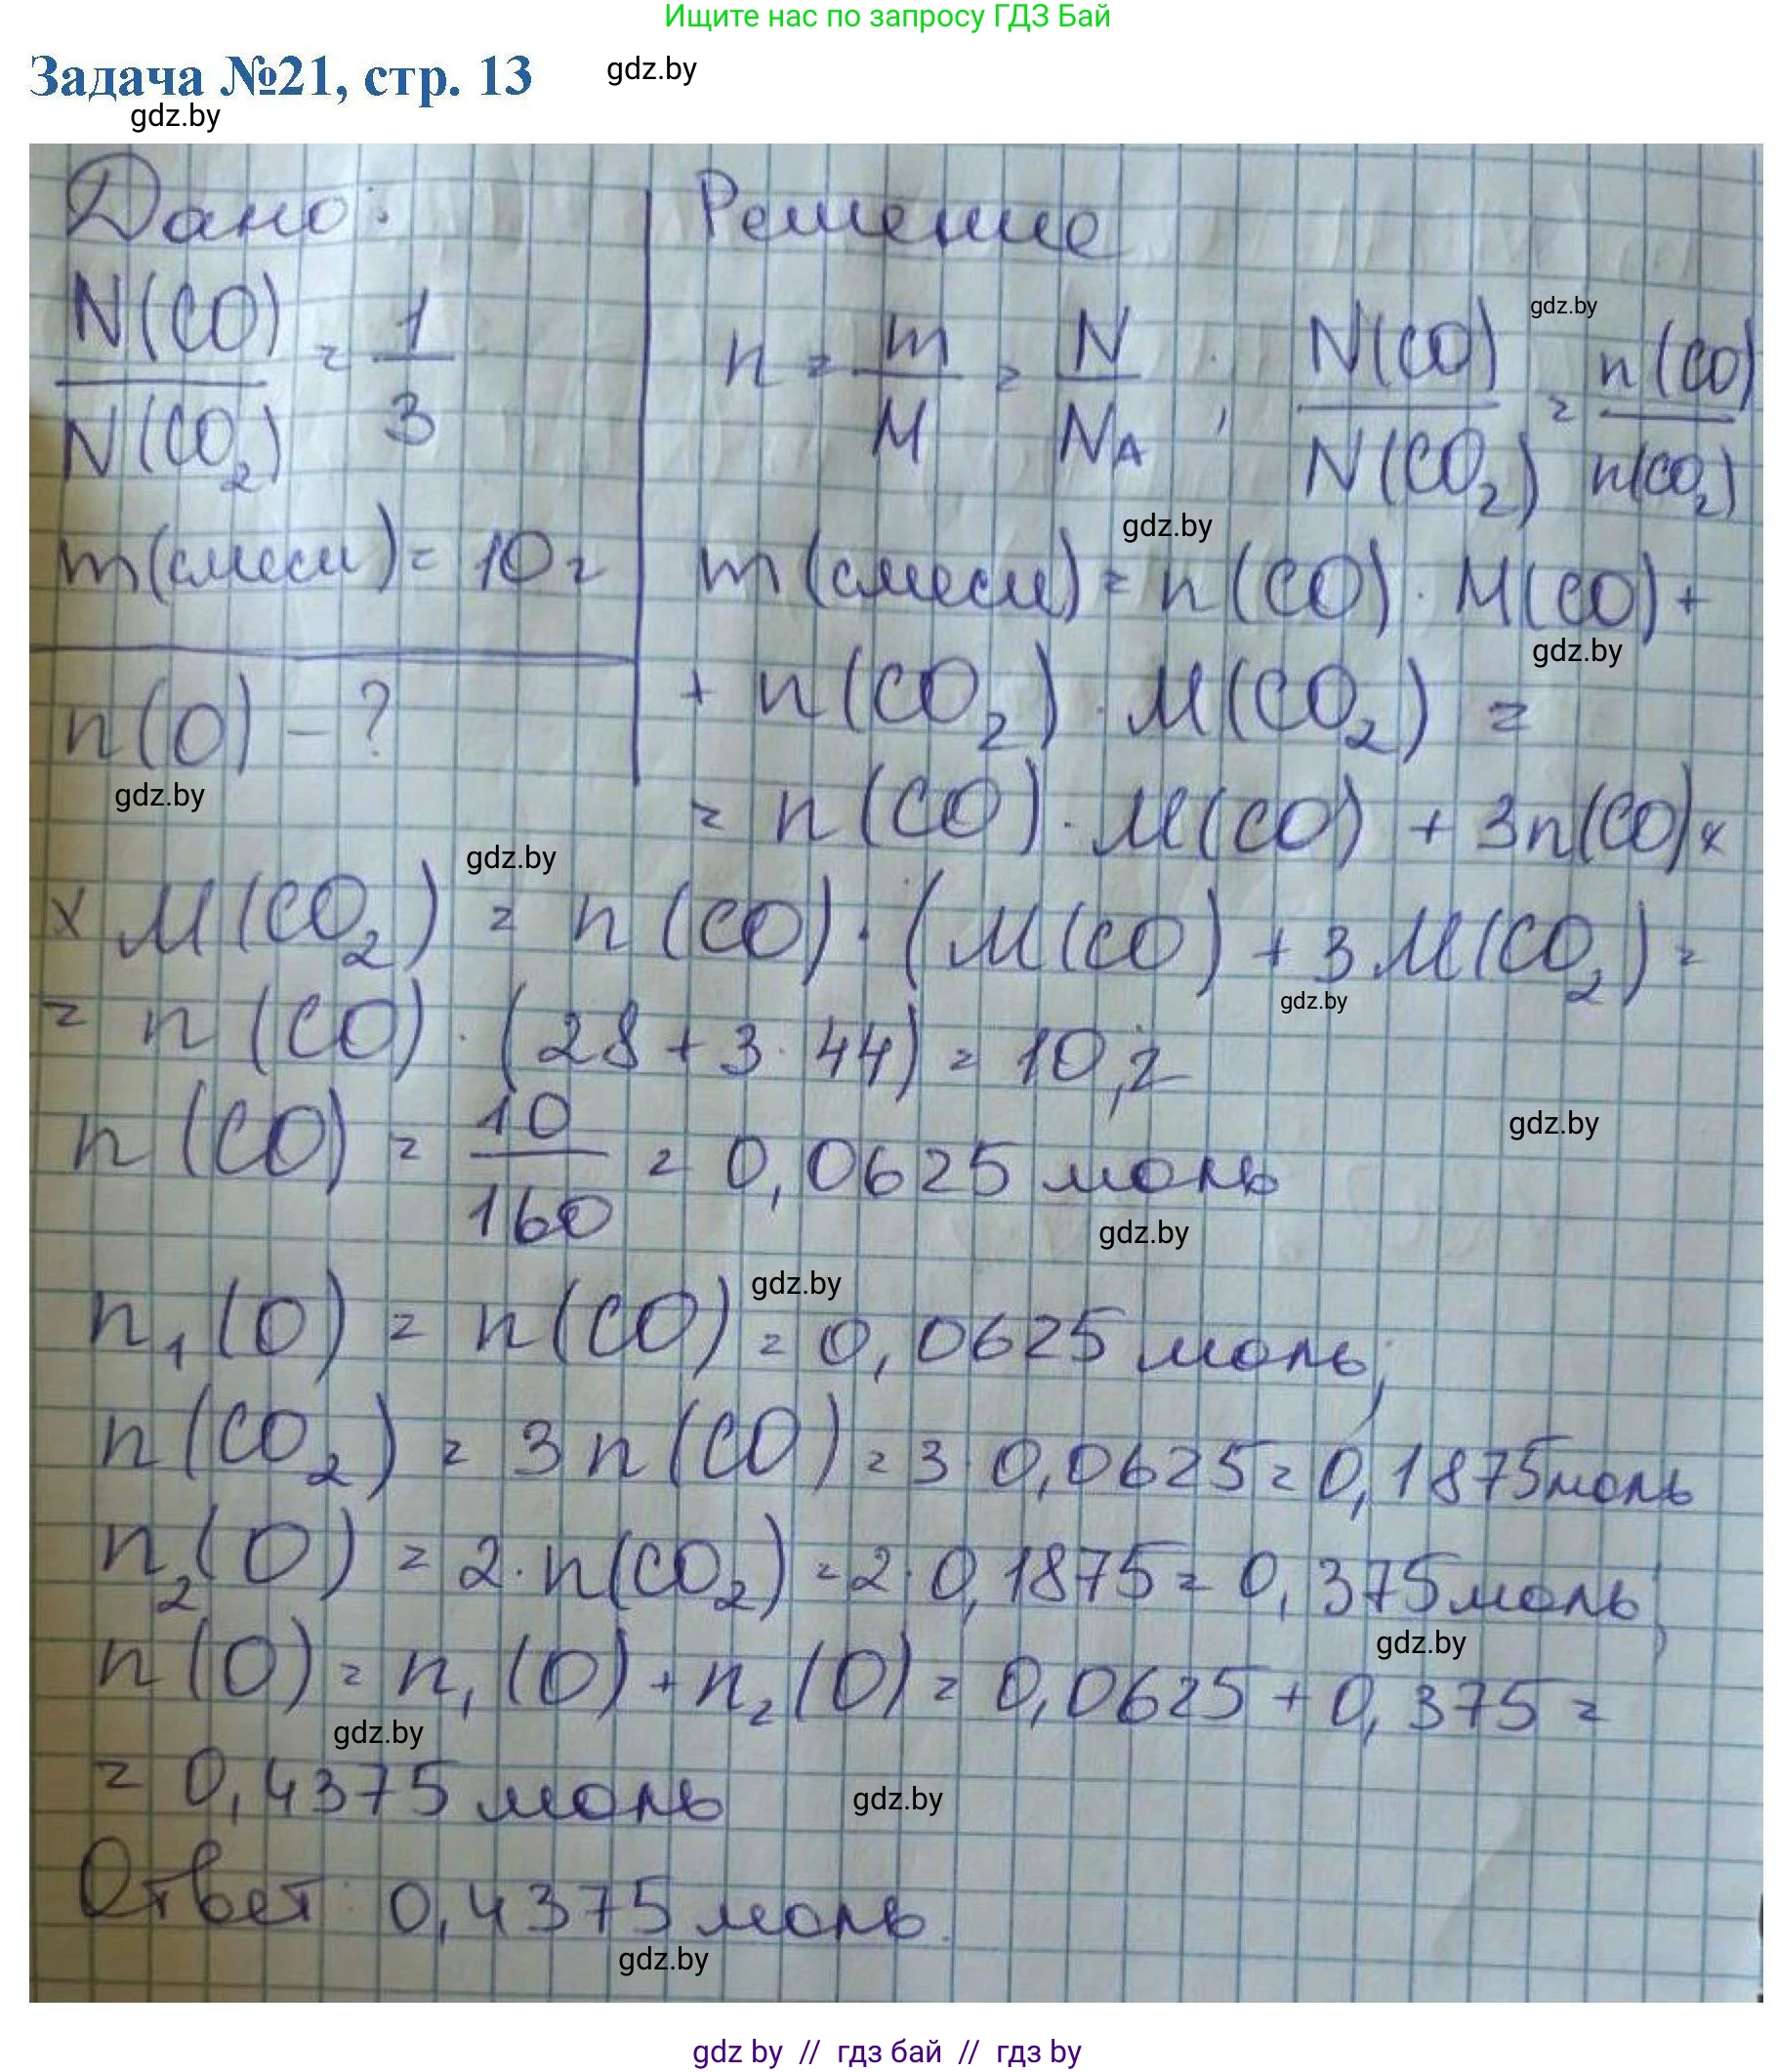 Ищите нас по запросу ГДЗ Бай
Задача №21, стр. 13
gdz.by
gdz.by
Дано:
N(CO)/N(CO₂) = 1/3
m(смеси) = 10 г
n(O) - ?
gdz.by
Решение
gdz.by
n = m/M = N/NA ; N(CO)/N(CO₂) = n(CO)/n(CO₂)
gdz.by
m(смеси) = n(CO) · M(CO) +
gdz.by
+ n(CO₂) · M(CO₂) =
= n(CO) · M(CO) + 3n(CO) x
gdz.by
x M(CO₂) = n(CO) · (M(CO) + 3M(CO₂) =
gdz.by
= n(CO) · (28 + 3 · 44) = 10, г
n(CO) = 10/160 = 0,0625 моль
gdz.by
gdz.by
gdz.by
n₁(O) = n(CO) = 0,0625 моль;
n(CO₂) = 3n(CO) = 3 · 0,0625 = 0,1875 моль
n₂(O) = 2 · n(CO₂) = 2 · 0,1875 = 0,375 моль;
gdz.by
n(O) = n₁(O) + n₂(O) = 0,0625 + 0,375 =
gdz.by
= 0,4375 моль
gdz.by
Ответ: 0,4375 моль.
gdz.by
gdz by // гдз бай // гдз by